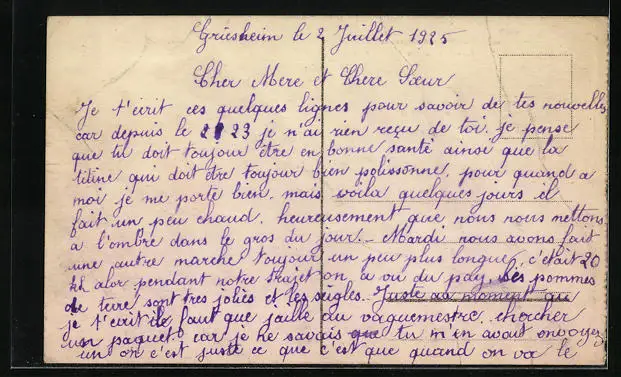 Griesheim le 2 Juillet 1925
Cher Mere et Chere Sœur
Je t'ecrit ces quelques lignes pour savoir de tes nouvelles
car depuis le 23 je n'ai rien reçu de toi. je pense
que tu doit toujour être en bonne santé ainsi que la
titine qui doit être toujour bien polissonne, pour quand a
moi je me porte bien. mais voila quelques jours il
fait un peu chaud. heureusement que nous nous mettons
a l'ombre dans le gros du jour. Mardi nous avons fait
une autre marche toujour un peu plus longue, c'était 20
kk alor pendant notre trajet on a vu du pay, les pommes
de terre sont tres jolies et les seigles. Juste au moment qu
je t'ecrit il faut que j'aille au vaguemestre chercher
un paquet car je ne savais que tu m'en avait envoyez
un on c'est juste ce que c'est que quand on va le